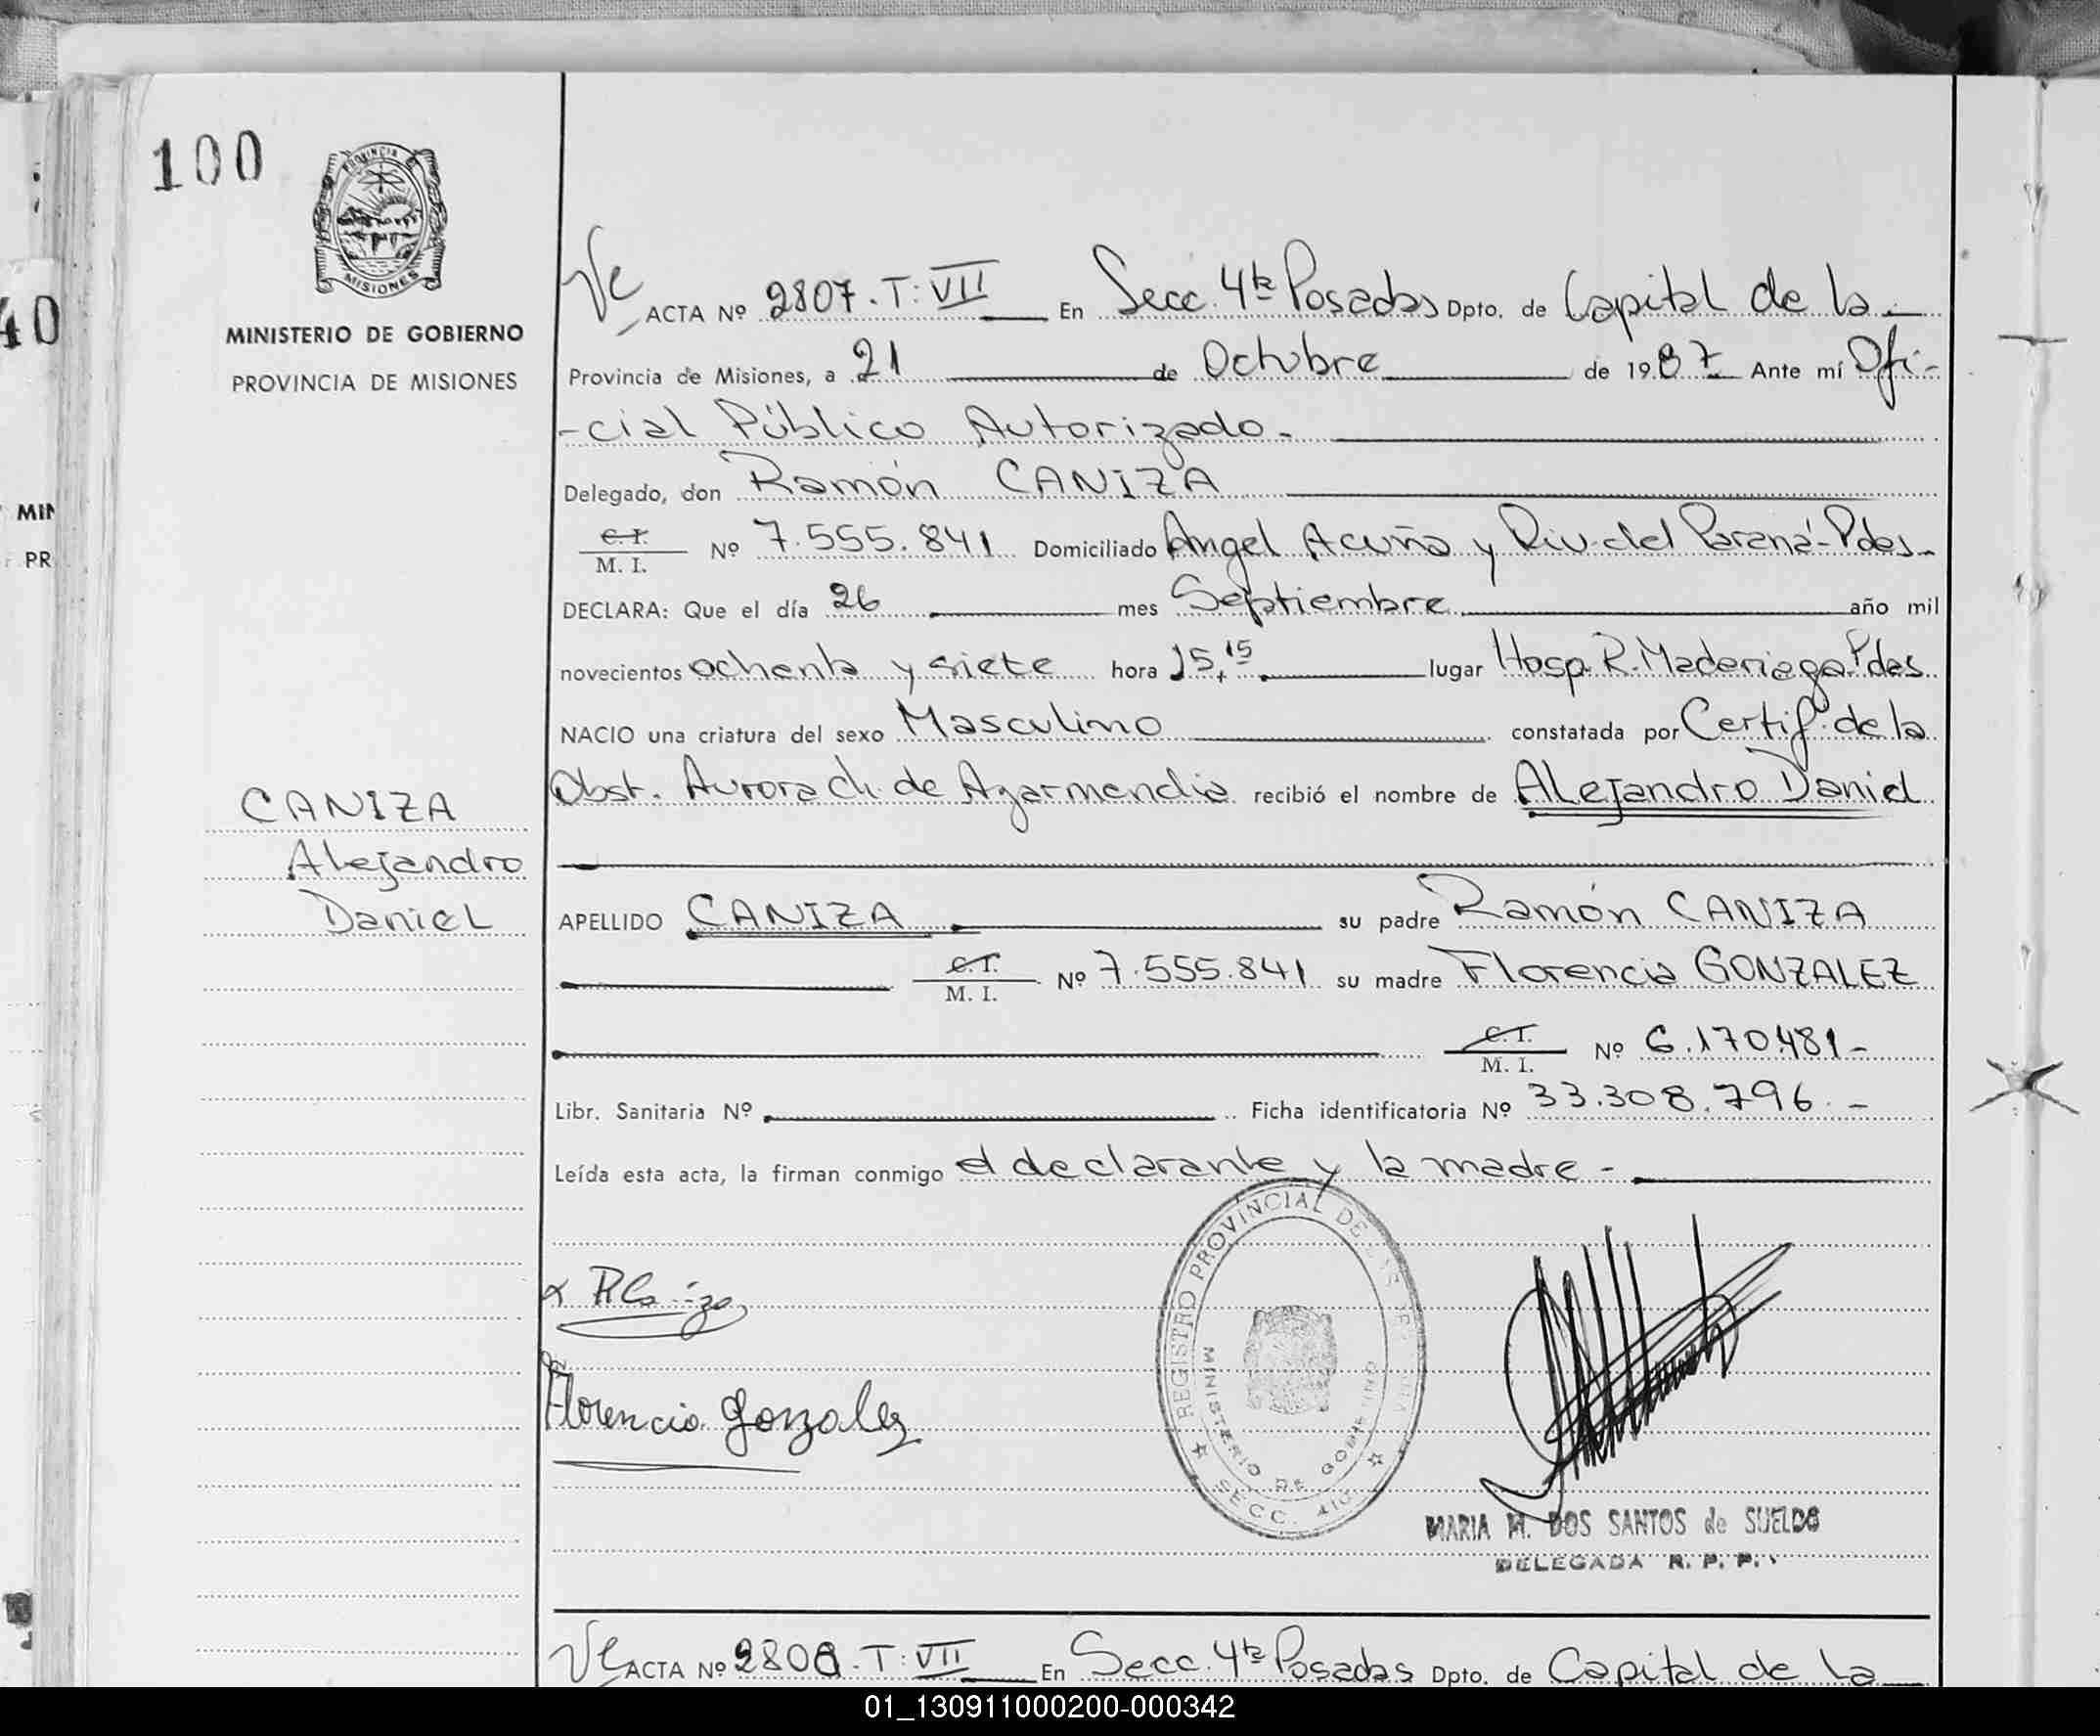 100
PROVINCIA
MISIONES
MINISTERIO DE GOBIERNO
PROVINCIA DE MISIONES
40
MIN
PR
ACTA Nº 2807.T:VII En Secc. 4ta Posadas Dpto. de Capital de la
Provincia de Misiones, a 21 de Octubre de 1987 Ante mí Ofi-
-cial Público Autorizado.
Delegado, don Ramón CANIZA
C. I.
M. I. Nº 7.555.841 Domiciliado Angel Acuña y Riv. del Paraná-Pdas
DECLARA: Que el día 26 mes Septiembre año mil
novecientos ochenta y siete hora 15,15 lugar Hosp. R. Madariaga Pdas
NACIO una criatura del sexo Masculino constatada por Certif. de la
Obst. Aurora Ch. de Azarmendia recibió el nombre de Alejandro Daniel
CANIZA
Alejandro
Daniel
APELLIDO CANIZA su padre Ramón CANIZA
C. I.
M. I. Nº 7.555.841 su madre Florencia GONZALEZ
C. I.
M. I. Nº 6.170.481-
Libr. Sanitaria Nº Ficha identificatoria Nº 33.308.796.-
Leída esta acta, la firman conmigo el declarante y la madre-
REGISTRO PROVINCIAL DE LAS
MINISTERIO DE GOBIERNO
SECC. 4ta
Florencia gonzalez
MARIA M. DOS SANTOS de SUELDO
DELEGADA R. P. P.
ACTA Nº 2808.T:VII En Secc. 4ta Posadas Dpto. de Capital de la
01_130911000200-000342